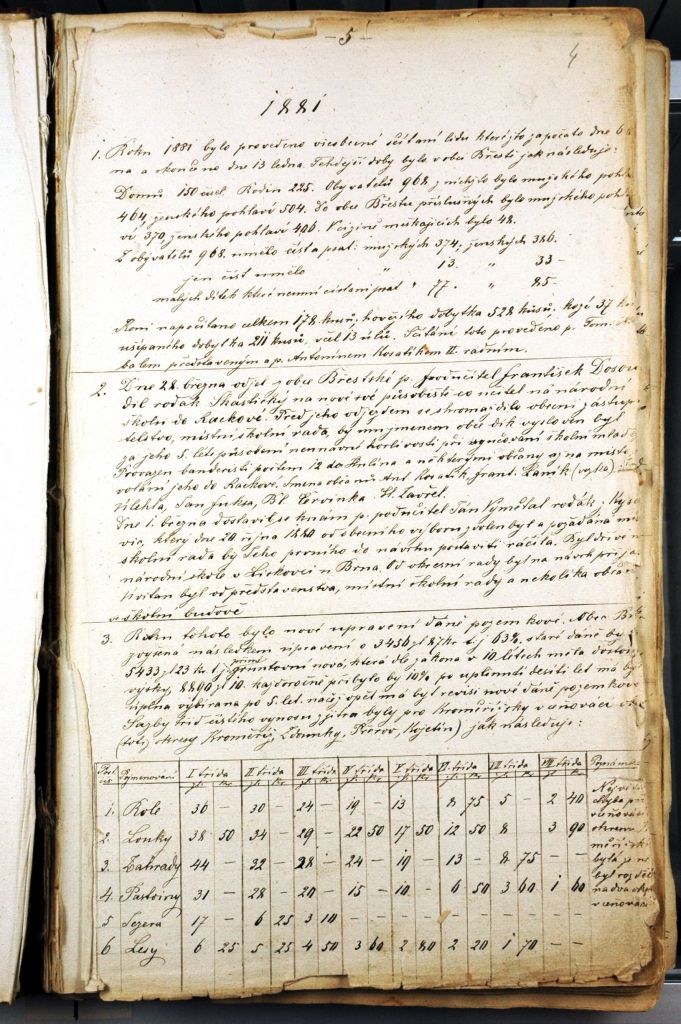 - 5 -
4
1881
1. Roku 1881 bylo provedeno všeobecné sčítání lidu kteréjžto započato dne 6
na a skončeno dne 13 ledna. Tehdejší doby bylo v obci Břestě jak následuje:
Domů 150 čísel Rodin 225. Obyvatelů 968, z nichžto bylo mužského pohla
464, ženského pohlaví 504. Do obce Břestu příslušných bylo mužského pohla
ví 370, ženského pohlaví 406. V cizině meškajících bylo 48.
Z obyvatelů 968 umělo číst a psát: mužských 374, ženských 386.
jen číst umělo " 13. " 33 -
malých dítek které neumí číst ani psát " 77. " 85 -
Koní napočítáno celkem 178 kusů, hovězího dobytka 528 kusů, kozí 37 ku
ušípaného dobytka 211 kusů, včel 13 úlů. Sčítání toto provedeno p. Tom.
balem představeným a p. Antonínem Kosatíkem II. radním.
2. Dne 28. března odjel z obce Břestské p. podučitel František Dosou
dil rodák Skaštický na nové své působiště co učitel na národní
školu do Rackové. Před jeho odjezdem se shromáždilo obecní zastupi
telstvo, místní školní rada, by mu jmenem obce dík vysloven byl
za jeho 5. leté působení neunavné horlivosti při vyučování školní mládeže
Provázen banderisti počtem 12 do Hulína a některými občany až na místo
volání jeho do Rackové. Jmena občanů Ant. Kosatík, frant. Daník (vojta)
Zlehla, Jan fuksa, Bl. Červinka St. Lavrel.
Dne 1. března dostavil se k nám p. podučitel Ján Vymětal rodák z Kyse
vic, který dne 20 října 1880 od obecního výboru zvolen byl a požádána mí
školní rada by Jeho prvního do návrhu postaviti ráčila. Byl dříve na
národní škole v Lískovci u Brna. Od okresní rady byl na návrh přijat
Uvítán byl od představenstva, místní školní rady a několika občanů
ve školní budově
3. Roku tohoto bylo nové upravení daně pozemkové. Obec Bře
zvýšená následkem upravení o 3456 zl 87 kr t.j. 63%, staré daně by
5433 zl 23 kr. t.j. přímé gruntovní nová, která dle zákona v 10 létech měla dostoup
výšky, 8890 zl 10. každoročně přibylo by 10% po uplynutí desíti let má by
úplna vybírana po 5. let. načež opět má býti revisí nové daně pozemkové
Sazby tříd čistého výnosu z jitra byly pro Kroměřížský v ceňovací ok
(totiž okresy Kroměříž, Zdounky, Přerov, Kojetín) jak následuje:
Poř čís | Pojmenování | I třída | II třída | III třída | IV třída | V třída | VI třída | VII třída | VIII třída | Poznámka
zl. kr. zl. kr. zl. kr. zl. kr. zl. kr. zl. kr. zl. kr. zl. kr.
1. Role 36 - 30 - 24 - 19 - 13 8 75 5 - 2 40
2. Louky 38 50 34 - 29 - 22 50 17 50 12 50 8 3 90
3. Zahrady 44 - 32 - 28 - 24 - 19 - 13 - 8 75 -
4. Pastviny 31 - 28 - 20 - 15 - 10 - 6 50 3 60 1 60
5 Jezera 17 - 6 25 3 10 - - - - - - - - -
6 Lesy 6 25 5 25 4 50 3 60 2 80 2 20 1 70 - -